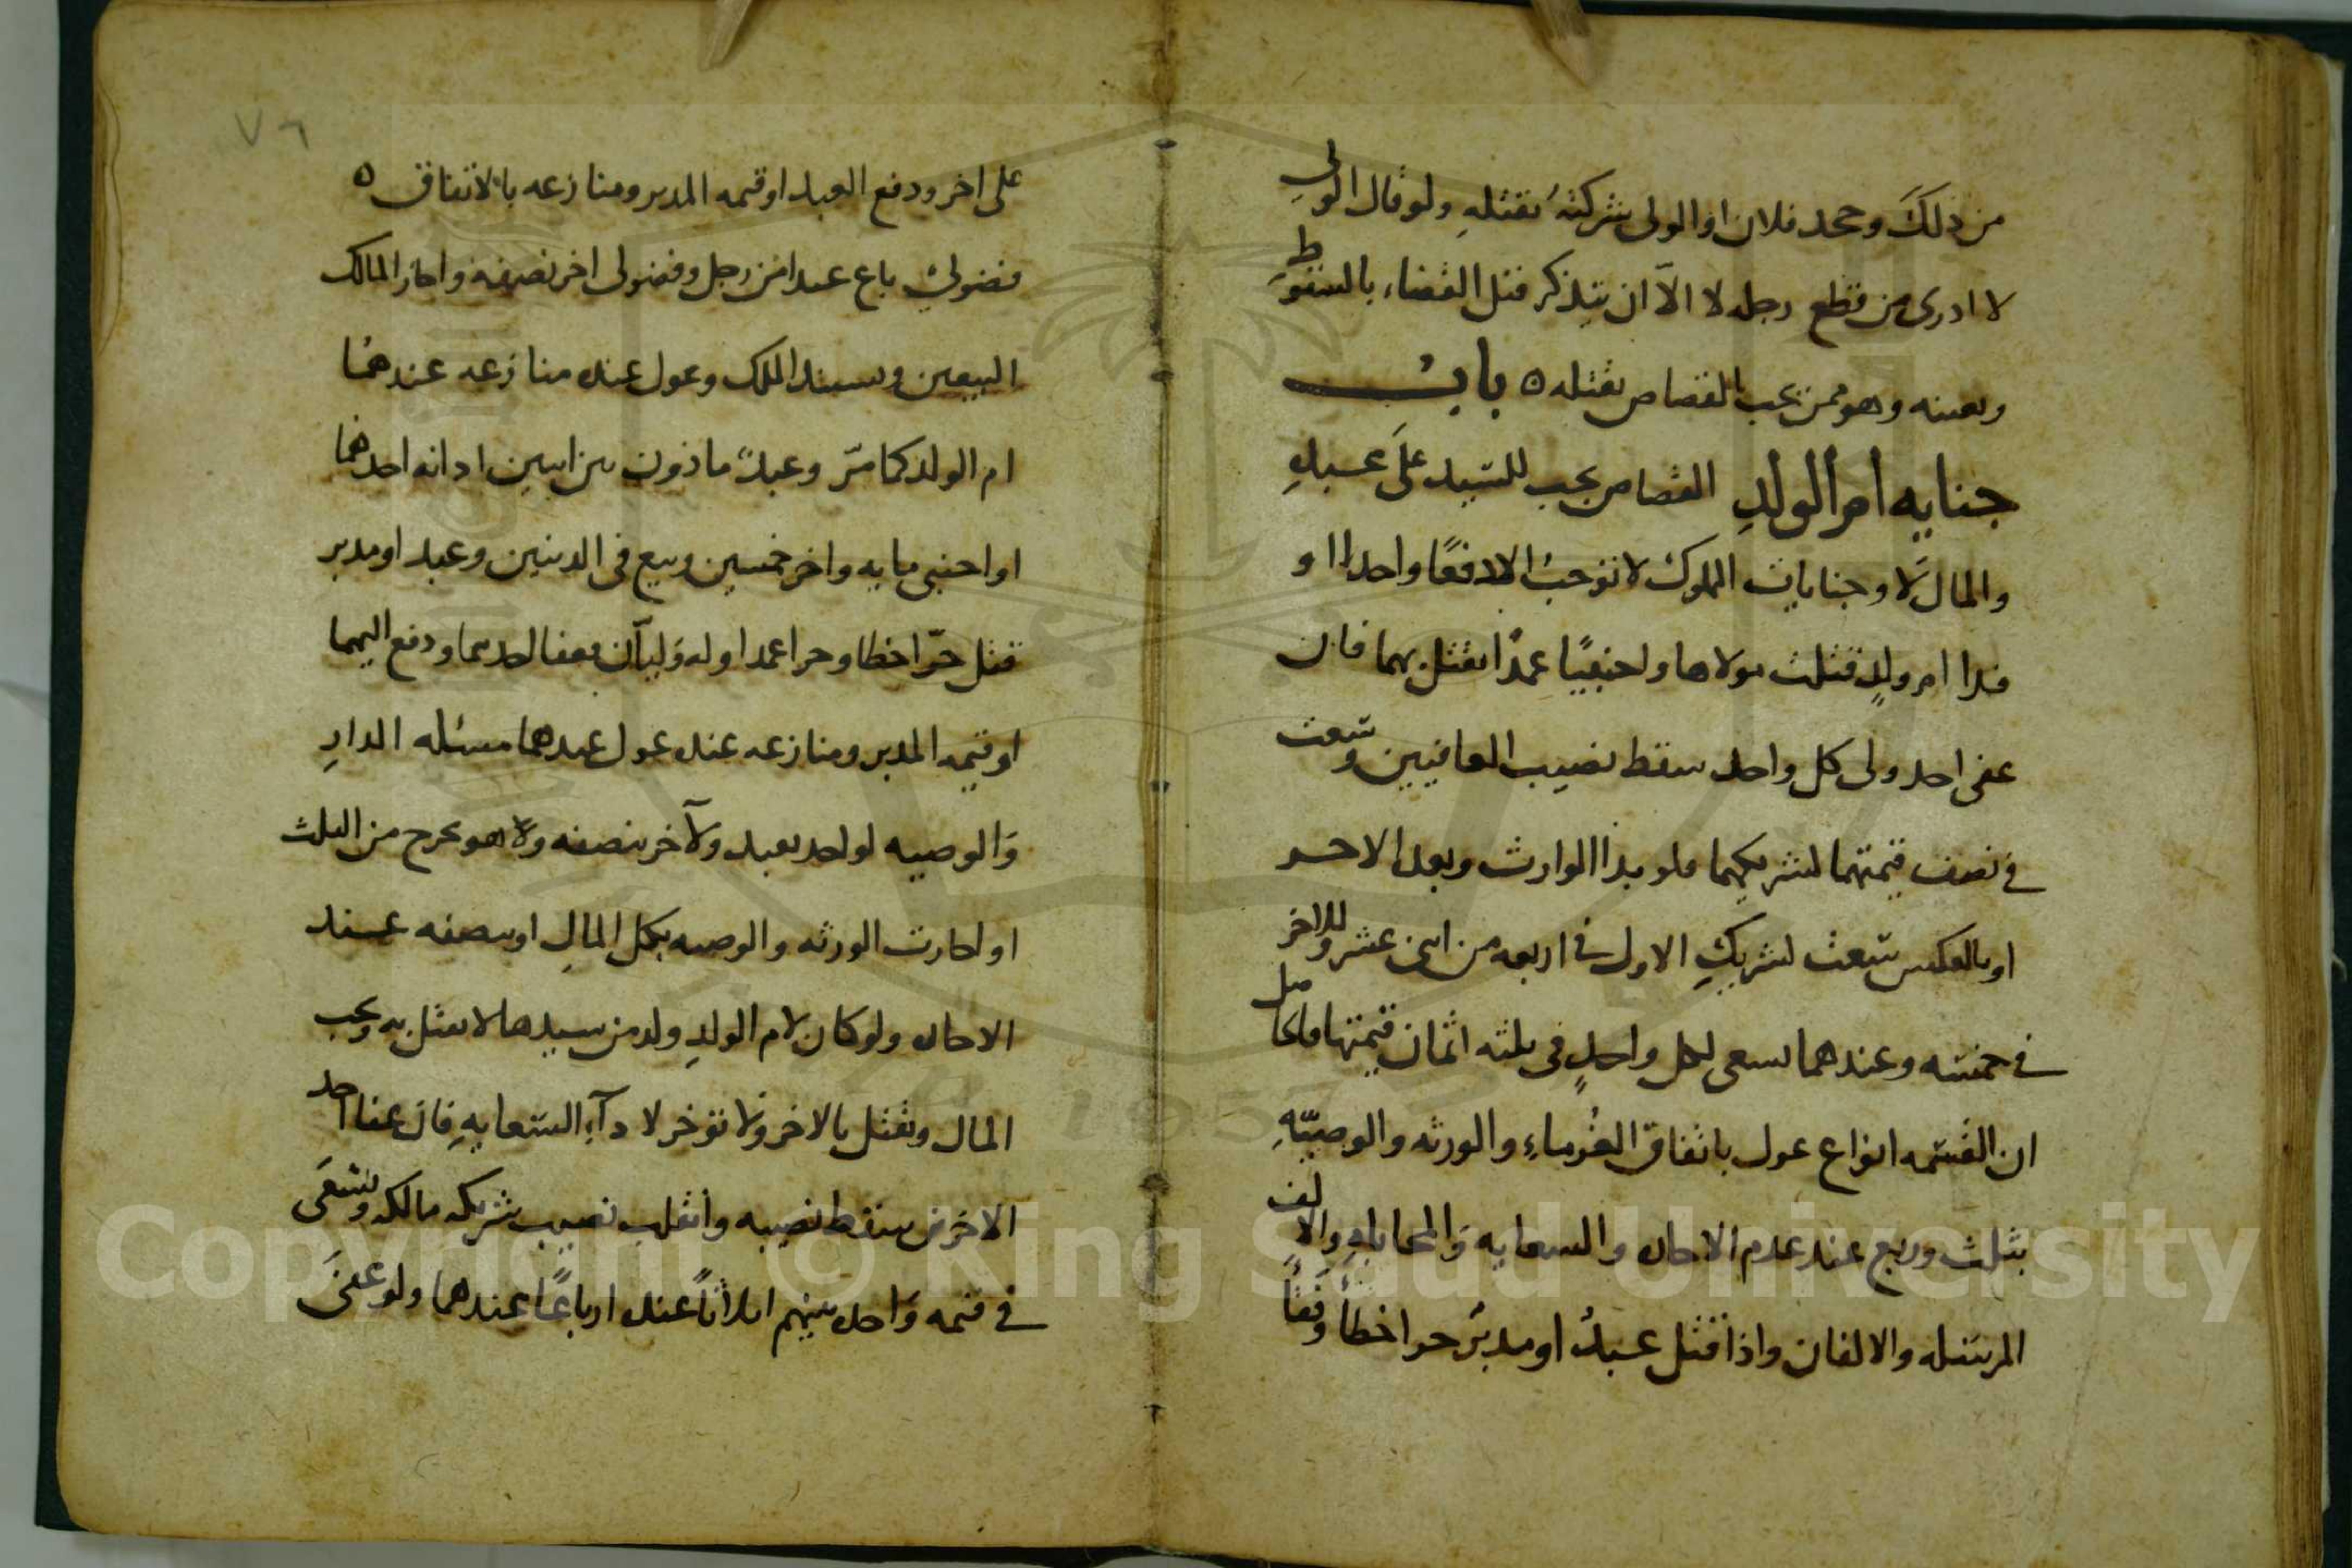 من ذلكَ وجحد فلان او الولى شركته بقتلهِ ولو قال الولى
لا ادرى من قطع رجله لا الاّ ان يتذكر قبل القضاء بالسقوط
وبعينه وهو ممن يجب القصاص بقتله ه بابٌ
جنايه امر الولدِ القصاص يجب للسّيد علَى عبدهِ
والمال لَا وجنايات المملوك لا توجبُ الا دفعًا واحدا او
فدا امر ولدٍ قتلت مولاها واجنبيًا عمدًا تقتل بهما فان
عفى احد ولى كل واحد سقط نصيب العافيين وسّعت
فى نصف قيمتهما لشريكهما فلو بدا الوارث وبعد الاخر
او بالعكس سّعت لشريكِ الاول فى اربعه من اثنى عشر وللاخر
فى خمسه وعندهما تسعى لكل واحدٍ فى ثلثه اثمان قيمتها فالحاصل
ان القسّمه انواع عول باتفاق الغُرماءِ والورثه والوصيّهِ
بثلث وربع عند عدم الاجازه والسعايه وَالمحاباهِ والالف
المرسَله والالفان واذا قتل عبدٌ او مدبرٌ حرا خطأ وفقأ
٧٦
على اخر ودفع العبد او قيمه المدبر ومنازعه بالاتفاق ه
فضولىٌ باع عبدا من رجل وفضولى اخر نصفه واجاز المالك
البيعين وعول عنده منازعه عندهمُا
ام الولد كما مرّ وعبدٌ ماذون بين اثنين ادانه احدهما
او اجنبى مايه واخر خمسين وبيع فى الدينين وعبد او مدبر
قتل حرّا خطا وحرا عمدا وله وَليآن فعفا احدهما ودفع اليهما
او قيمه المدبر ومنازعه عنده عول عندهما مسئله الدارِ
وَالوصيه لواحد بعبد ولآخر بنصفه وهو يخرج من الثلث
او اجازت الورثه والوصيه بكل المالِ او بنصفه عند
الاجازه ولو كان لام الولدِ ولد من سيدها لا تقتل به ويجب
المال وتقتل بالاخر ولا تؤخر لادآءِ السّعايهِ فان عفا احد
الاخرين سقط نصيبه وانقلب نصيب شريكه مالا وتسْعَى
فى قيمه وَاحده بينهم اثلاثًا عنده ارباعًا عندهما ولو عفىَ
Copyright © King Saud University